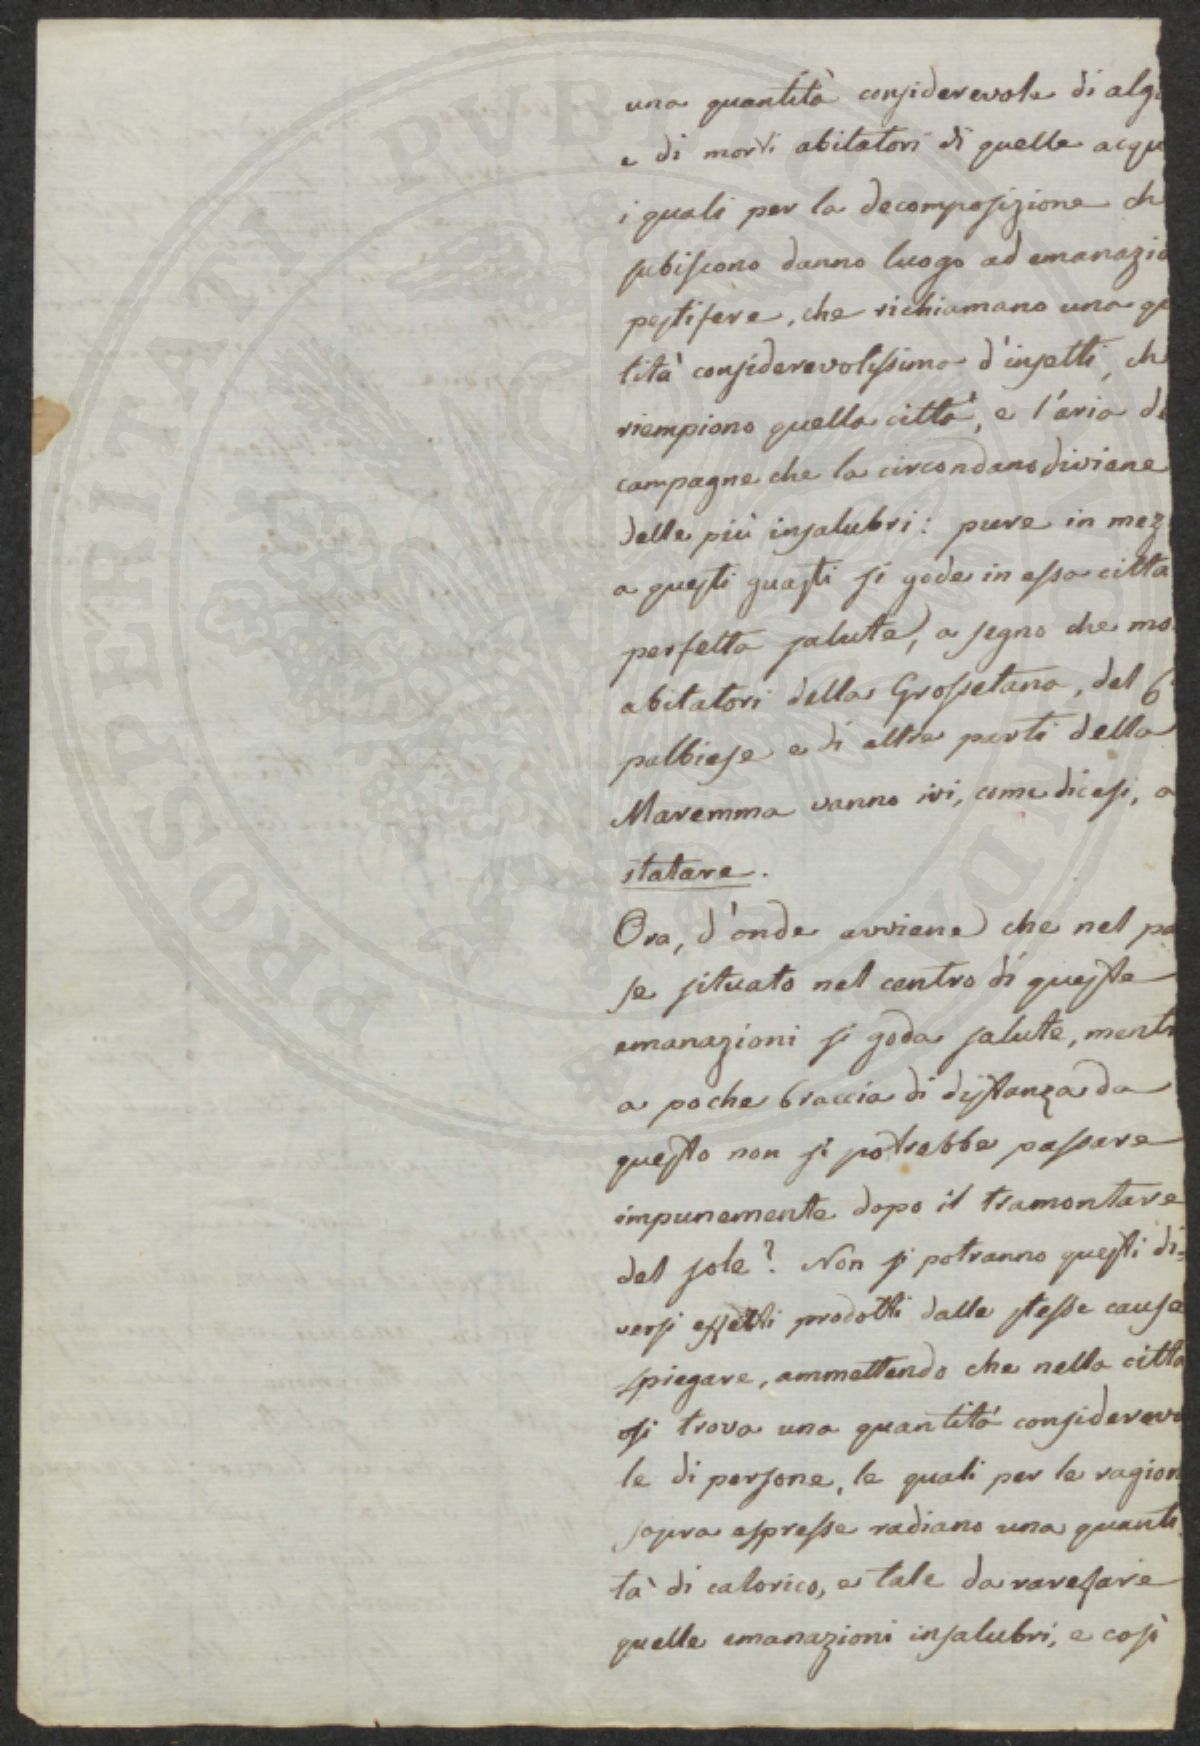 una quantità considerevole di alg
e di morti abitatori di quelle acqu
i quali per la decomposizione ch
subiscono danno luogo ad emanazio
pestifere, che richiamano una qu
tità considerevolissima d'insetti, ch
riempiono quella città, e l'aria de
campagne che la circondano diviene
delle più insalubri: pure in mez
a questi guasti si gode in essa città
perfetta salute, a segno che mo
abitatori della Grossetana, del
palbiese e di altre parti della
Maremma vanno ivi, come dicesi, a
statare.
Ora, d'onde avviene che nel pa
se situato nel centro di queste
emanazioni si goda salute, mentr
a poche braccia di distanza da
questo non si potrebbe passare
impunemente dopo il tramontare
del sole? Non si potranno questi di=
versi effetti prodotti dalle stesse cause
spiegare, ammettendo che nella città
si trova una quantità considerevo
le di persone, le quali per le ragion
sopra espresse radiano una quanti
tà di calorico, e tale da rarefare
quelle emanazioni insalubri, e così
PROSPERITATI PVBLICAE